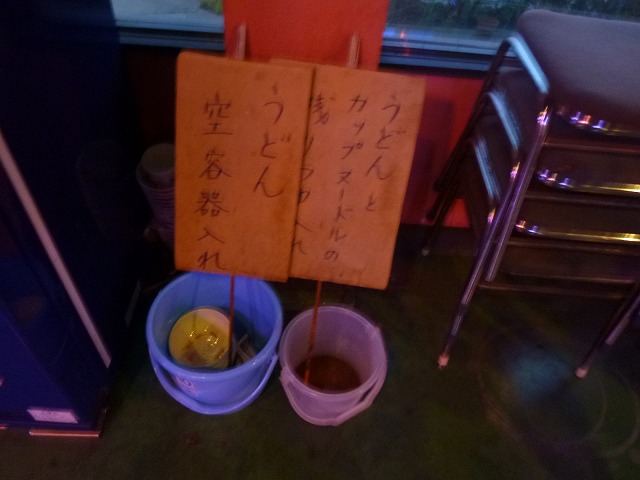 うどん
空容器入れ
うどんと
カップヌードルの
残りつゆ入れ